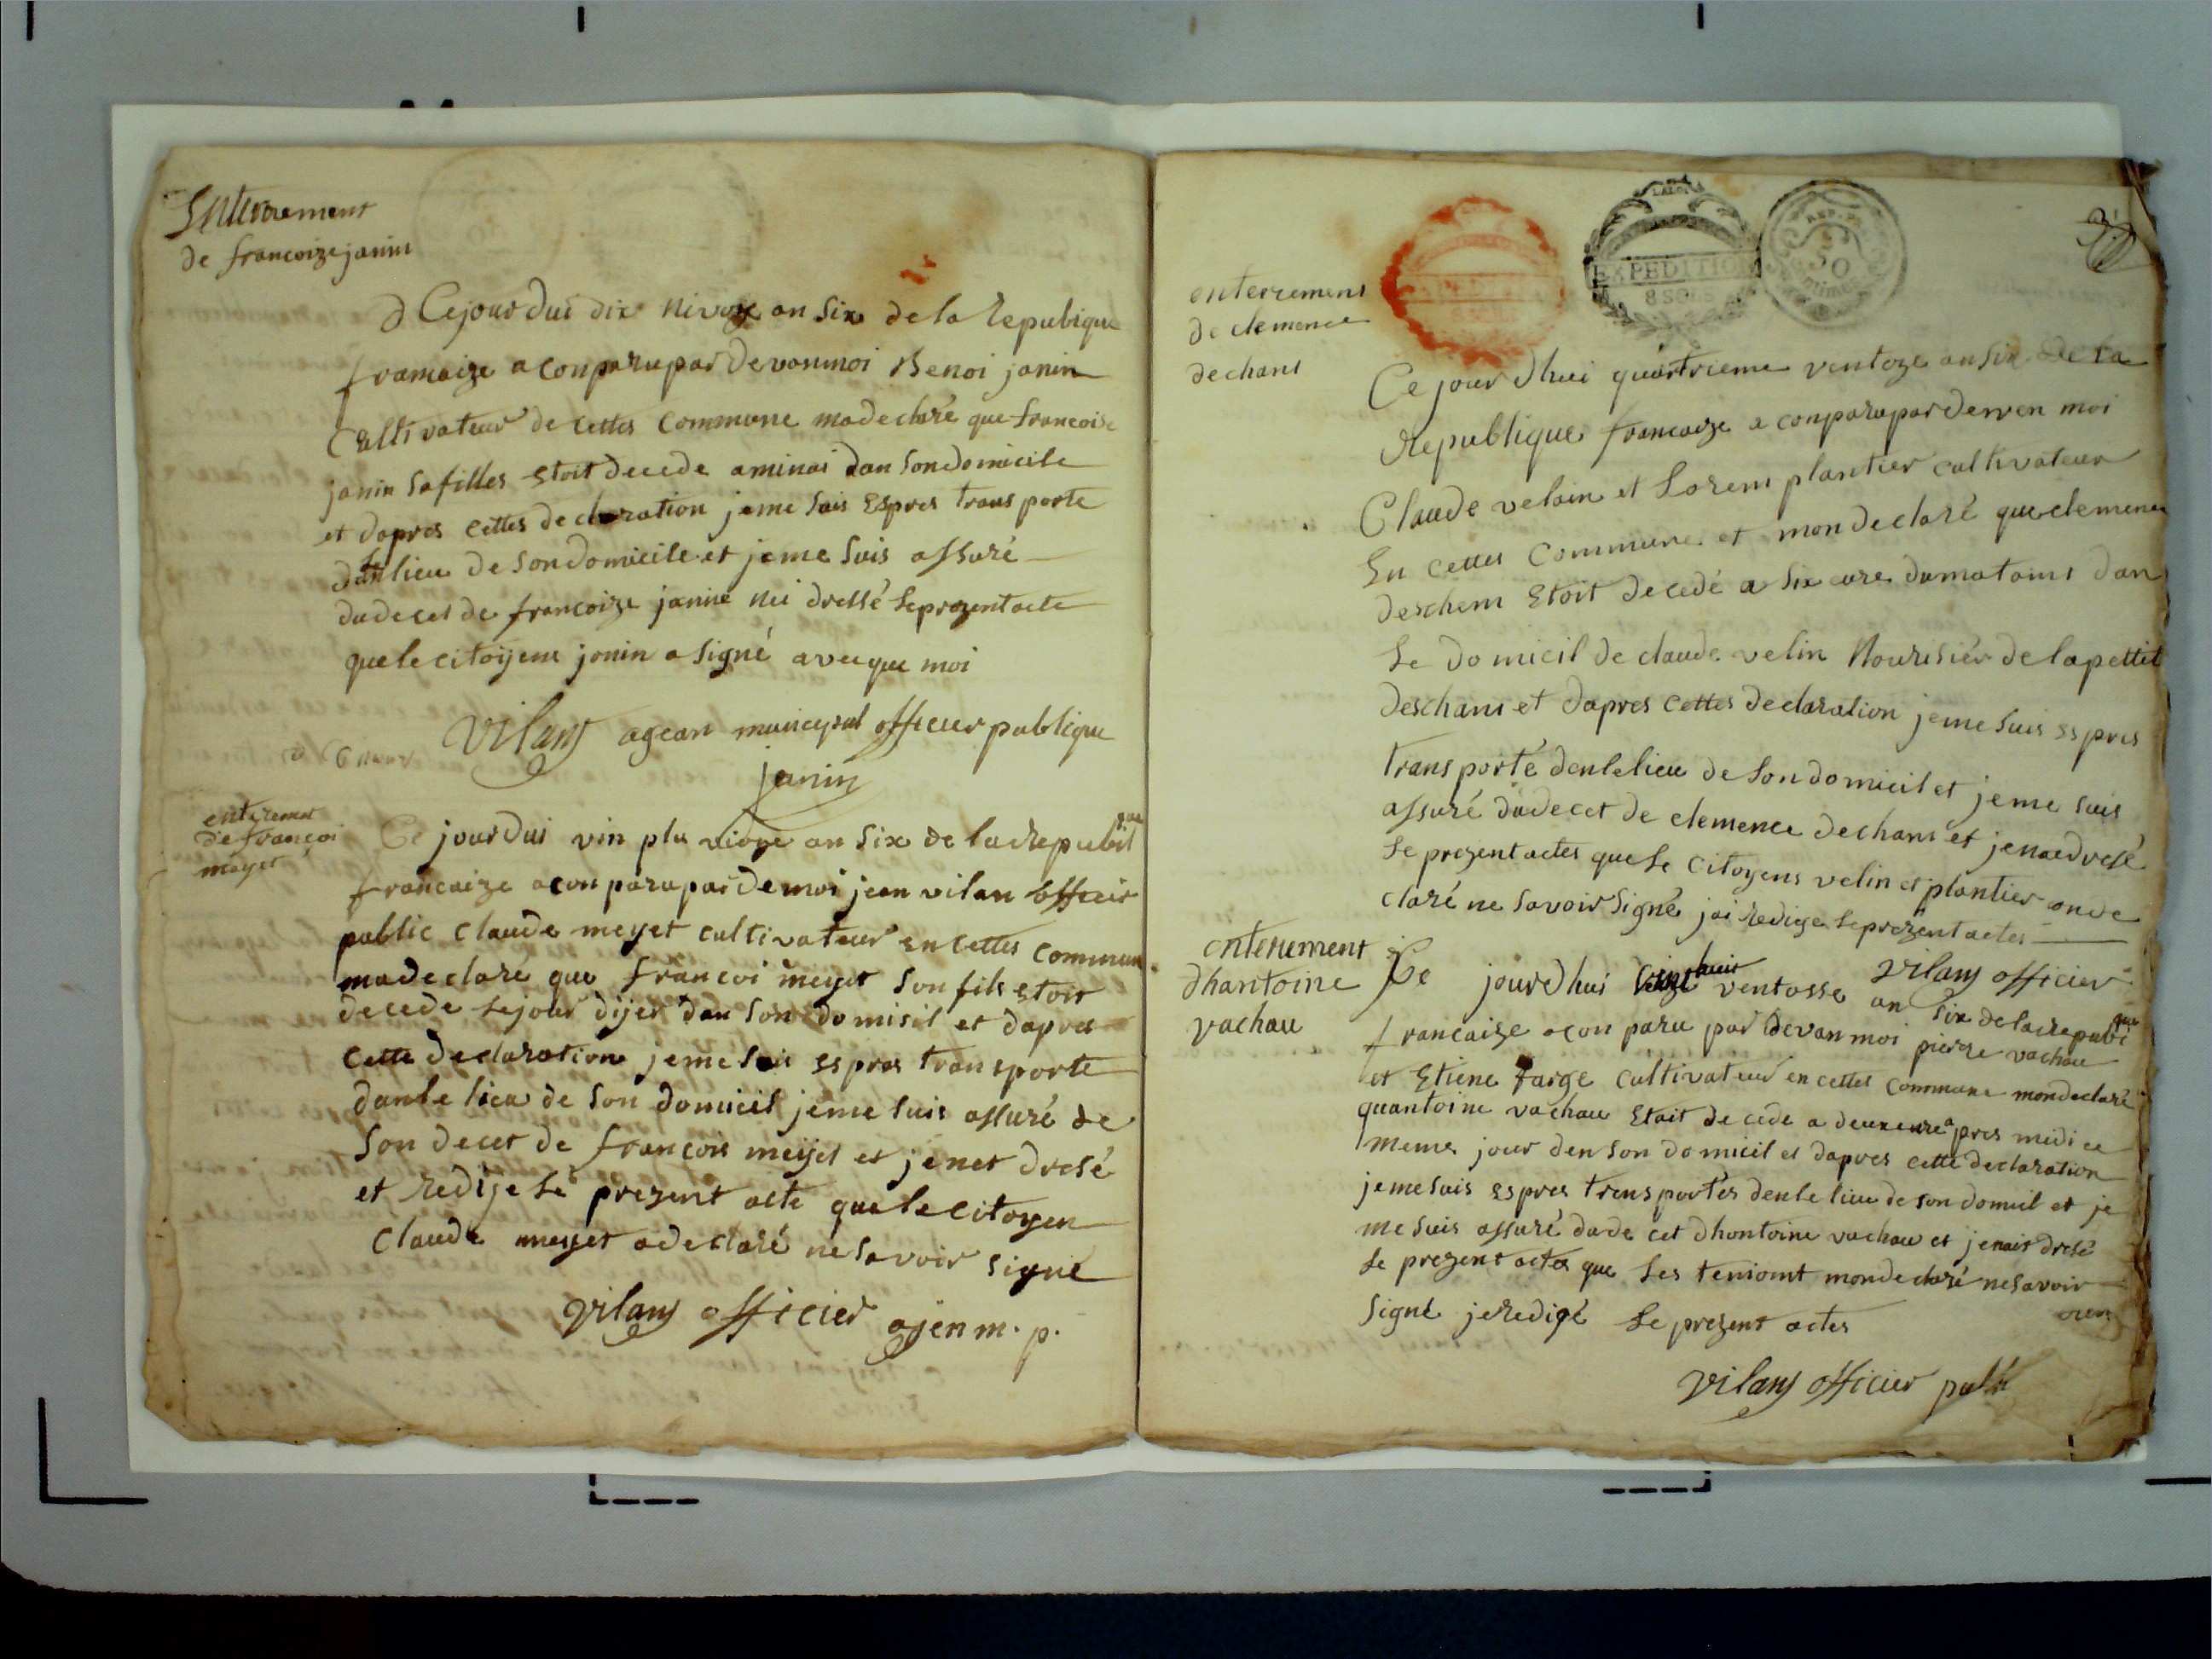 Enterrement
de francoize janin
Cejourdui dix nivoze an six de la Repubique
francaize a conparu par devanmoi Benoi janin
Cultivateur de cettes Commune madeclaré que francoise
janin safilles etoit decede aminui dan son domicile
et dapres cettes declaration jeme suis Espres transporte
dan le lieu de son domicile et jeme suis assuré
dudecet de francoize janine nei dressé le prezent acte
que le citoijens janin a signé aveque moi
Vilans agean municypal officier publique
janin
enterement
de françoi
meyet
Ce jourdui vin plu vioze an six de la Republique
francaize a conparu par demoi jean vilan officier
public Claude meyet cultivateur en cettes Commun
madeclaré que francoi meyet son fils etoit
decede le jour dijer dan son domisil et dapres
cette declaration jeme suis espres transporte
dan le lieu de son domicil jeme suis assuré de
son decet de francois meyet et jenet dresé
et redije le prezent acte que le citoyen
Claude meyet a declaré ne savoir signé
Vilans officier ajen m. p.
EXPEDITION
8 SOLS
REP. FRA
50
centimes
enterrement
de clemence
dechans
Ce jourdhui quartrieme ventoze an six de la
Republique francaize a conparu par derven moi
Claude velain et Lorem plantier cultivateur
En cettes Commune et mon declaré que clemence
deschem Etoit decedé a six eure dumatains dan
le domicil de claude velin Nourisier de la pettit
deschans et dapres cettes declaration jeme suis espres
transporté den le lieu de son domicil et jeme suis
assuré dudecet de clemence dechans et jenaedresé
le prezent actes que le citoyens velin et plantier onde
claré ne savoir signé jai redige le prezent actes
Vilans officier
enterement
dhantoine
vachau
Ce jourdhui vingt huit ventosse an six de la republique
francaize a conparu par devan moi pierre vachau
et Etiene farge cultivateur en cettes Commune mon declaré
quantoine vachau Etait decede a deux eure apres midi ce
meme jour den son domicil et dapres cette declaration
jeme suis espres transportés den le lieu de son domicil et je
me suis assuré dudecet dhontoine vachau et jenait dresé
le prezent actes que les temiont mon declaré ne savoir
signé jeredigé le prezent actes
Vilans officier publi